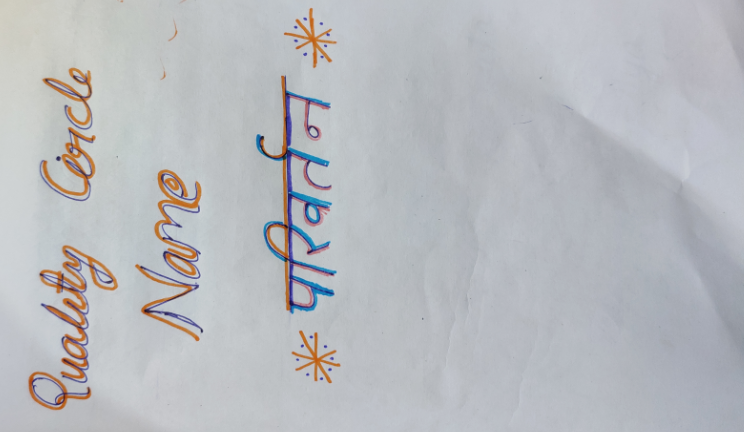 Quality Circle
Name
परिवर्तन